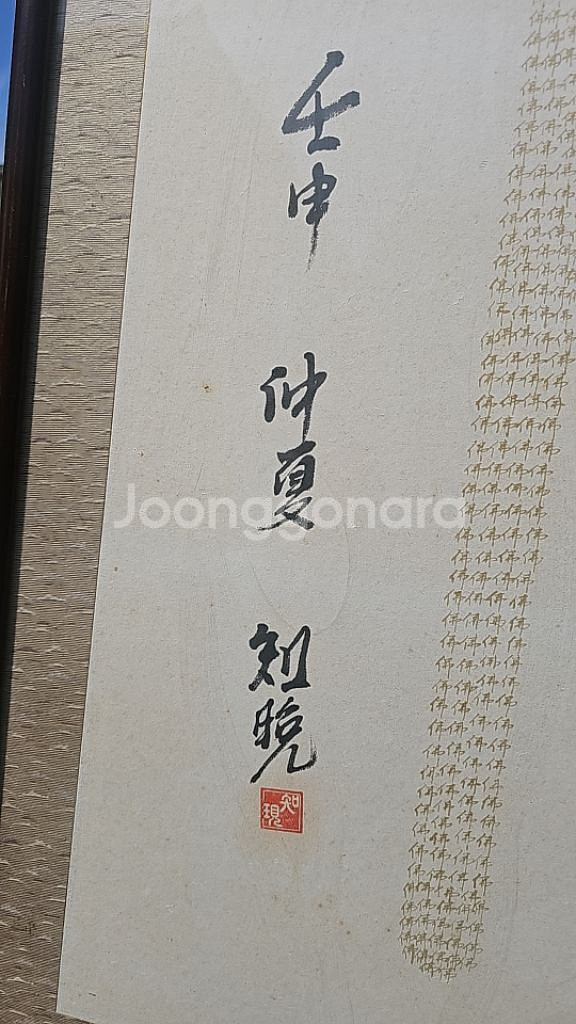 壬申 仲夏 知晛
知現
Joonggonara
佛